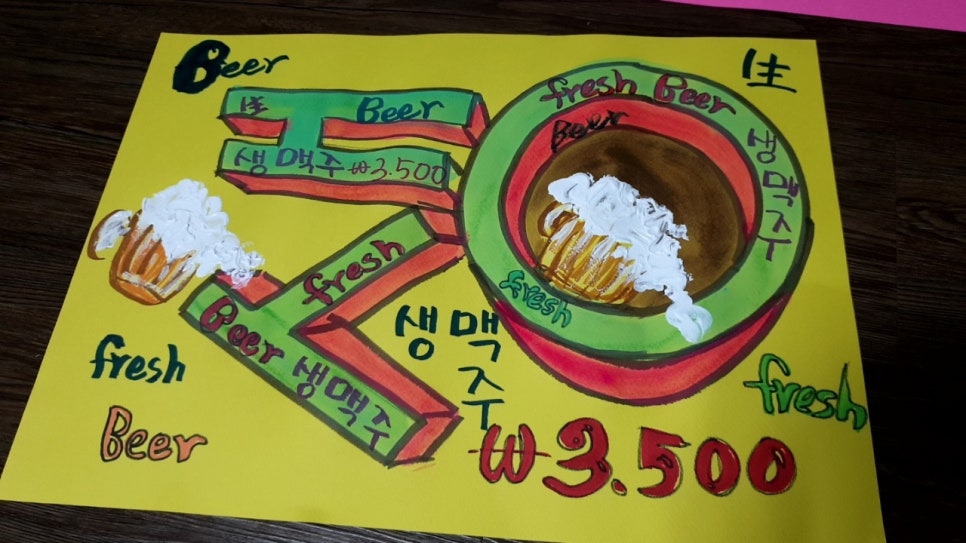 Beer
生
生 Beer
fresh Beer 생맥주
Beer
생맥주 ₩3.500
fresh
fresh
Beer 생맥주
생맥주
fresh
fresh
Beer
₩3.500